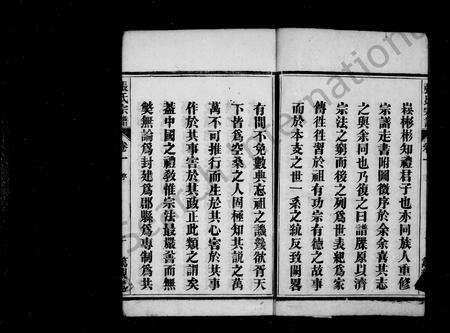 祿彬彬知禮君子也亦同族人重修
宗議走書附圖徵序於余余喜其志
之與余同也乃復之曰譜牒原以濟
宗法之窮而後之列為世表紀為家
傳徃徃習於祖有功宗有德之故事
而於本支之世一系之統反致闕畧
有間不免數典忘祖之譏幾欲胥天
下皆為空桑之人固極知其説之萬
萬不可推行而生於其心害於其事
作於其事害於其政正此類之謂矣
蓋中國之禮敎惟宗法最嚴善而無
獘無論為封建為郡縣為專制為共
張氏宗譜
卷一
International